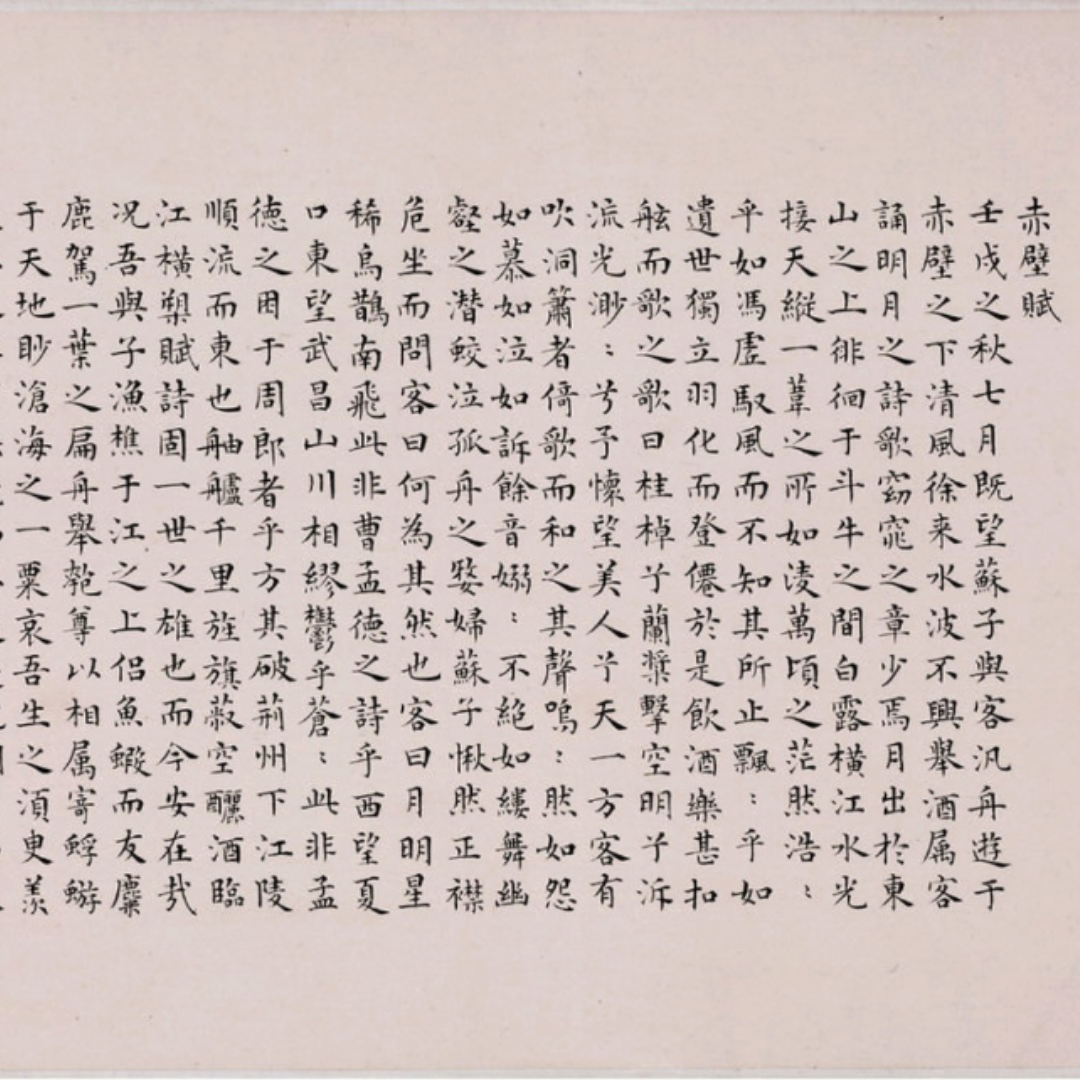 赤壁賦
壬戌之秋七月既望蘇子與客汎舟遊于
赤壁之下清風徐来水波不興舉酒属客
誦明月之詩歌窈窕之章少焉月出於東
山之上徘徊于斗牛之間白露橫江水光
接天縱一葦之所如淩萬頃之茫然浩〻
乎如馮虛馭風而不知其所止飄〻乎如
遺世獨立羽化而登僊於是飲酒樂甚扣
舷而歌之歌曰桂棹兮蘭槳擊空明兮泝
流光渺〻兮予懷望美人兮天一方客有
吹洞簫者倚歌而和之其聲嗚〻然如怨
如慕如泣如訴餘音嫋〻不絶如縷舞幽
壑之潛蛟泣孤舟之嫠婦蘇子愀然正襟
危坐而問客曰何為其然也客曰月明星
稀烏鵲南飛此非曹孟德之詩乎西望夏
口東望武昌山川相繆鬱乎蒼〻此非孟
德之困于周郎者乎方其破荊州下江陵
順流而東也舳艫千里旌旗蔽空釃酒臨
江橫槊賦詩固一世之雄也而今安在哉
况吾與子漁樵于江之上侣魚蝦而友麋
鹿駕一葉之扁舟舉匏尊以相属寄蜉蝣
于天地眇滄海之一粟哀吾生之湏臾羨